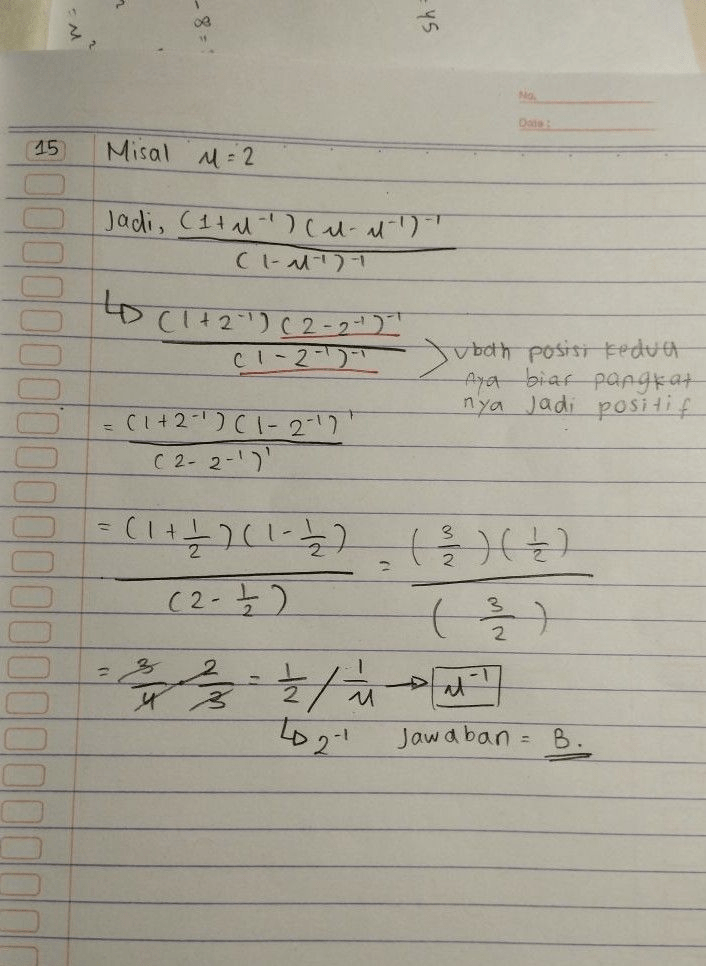 = u²
- 8 =
= 45
No.
Date :
15 Misal u = 2
Jadi, (1+u⁻¹)(u-u⁻¹)⁻¹
(1-u⁻¹)⁻¹
↳ (1+2⁻¹)(2-2⁻¹)⁻¹
(1-2⁻¹)⁻¹
> ubah posisi kedua
nya biar pangkat
nya jadi positif
= (1+2⁻¹)(1-2⁻¹)¹
(2-2⁻¹)¹
= (1+1/2)(1-1/2) = (3/2)(1/2)
(2-1/2) (3/2)
= 3/4 . 2/3 = 1/2 / 1/u → u⁻¹
↳ 2⁻¹ Jawaban = B.